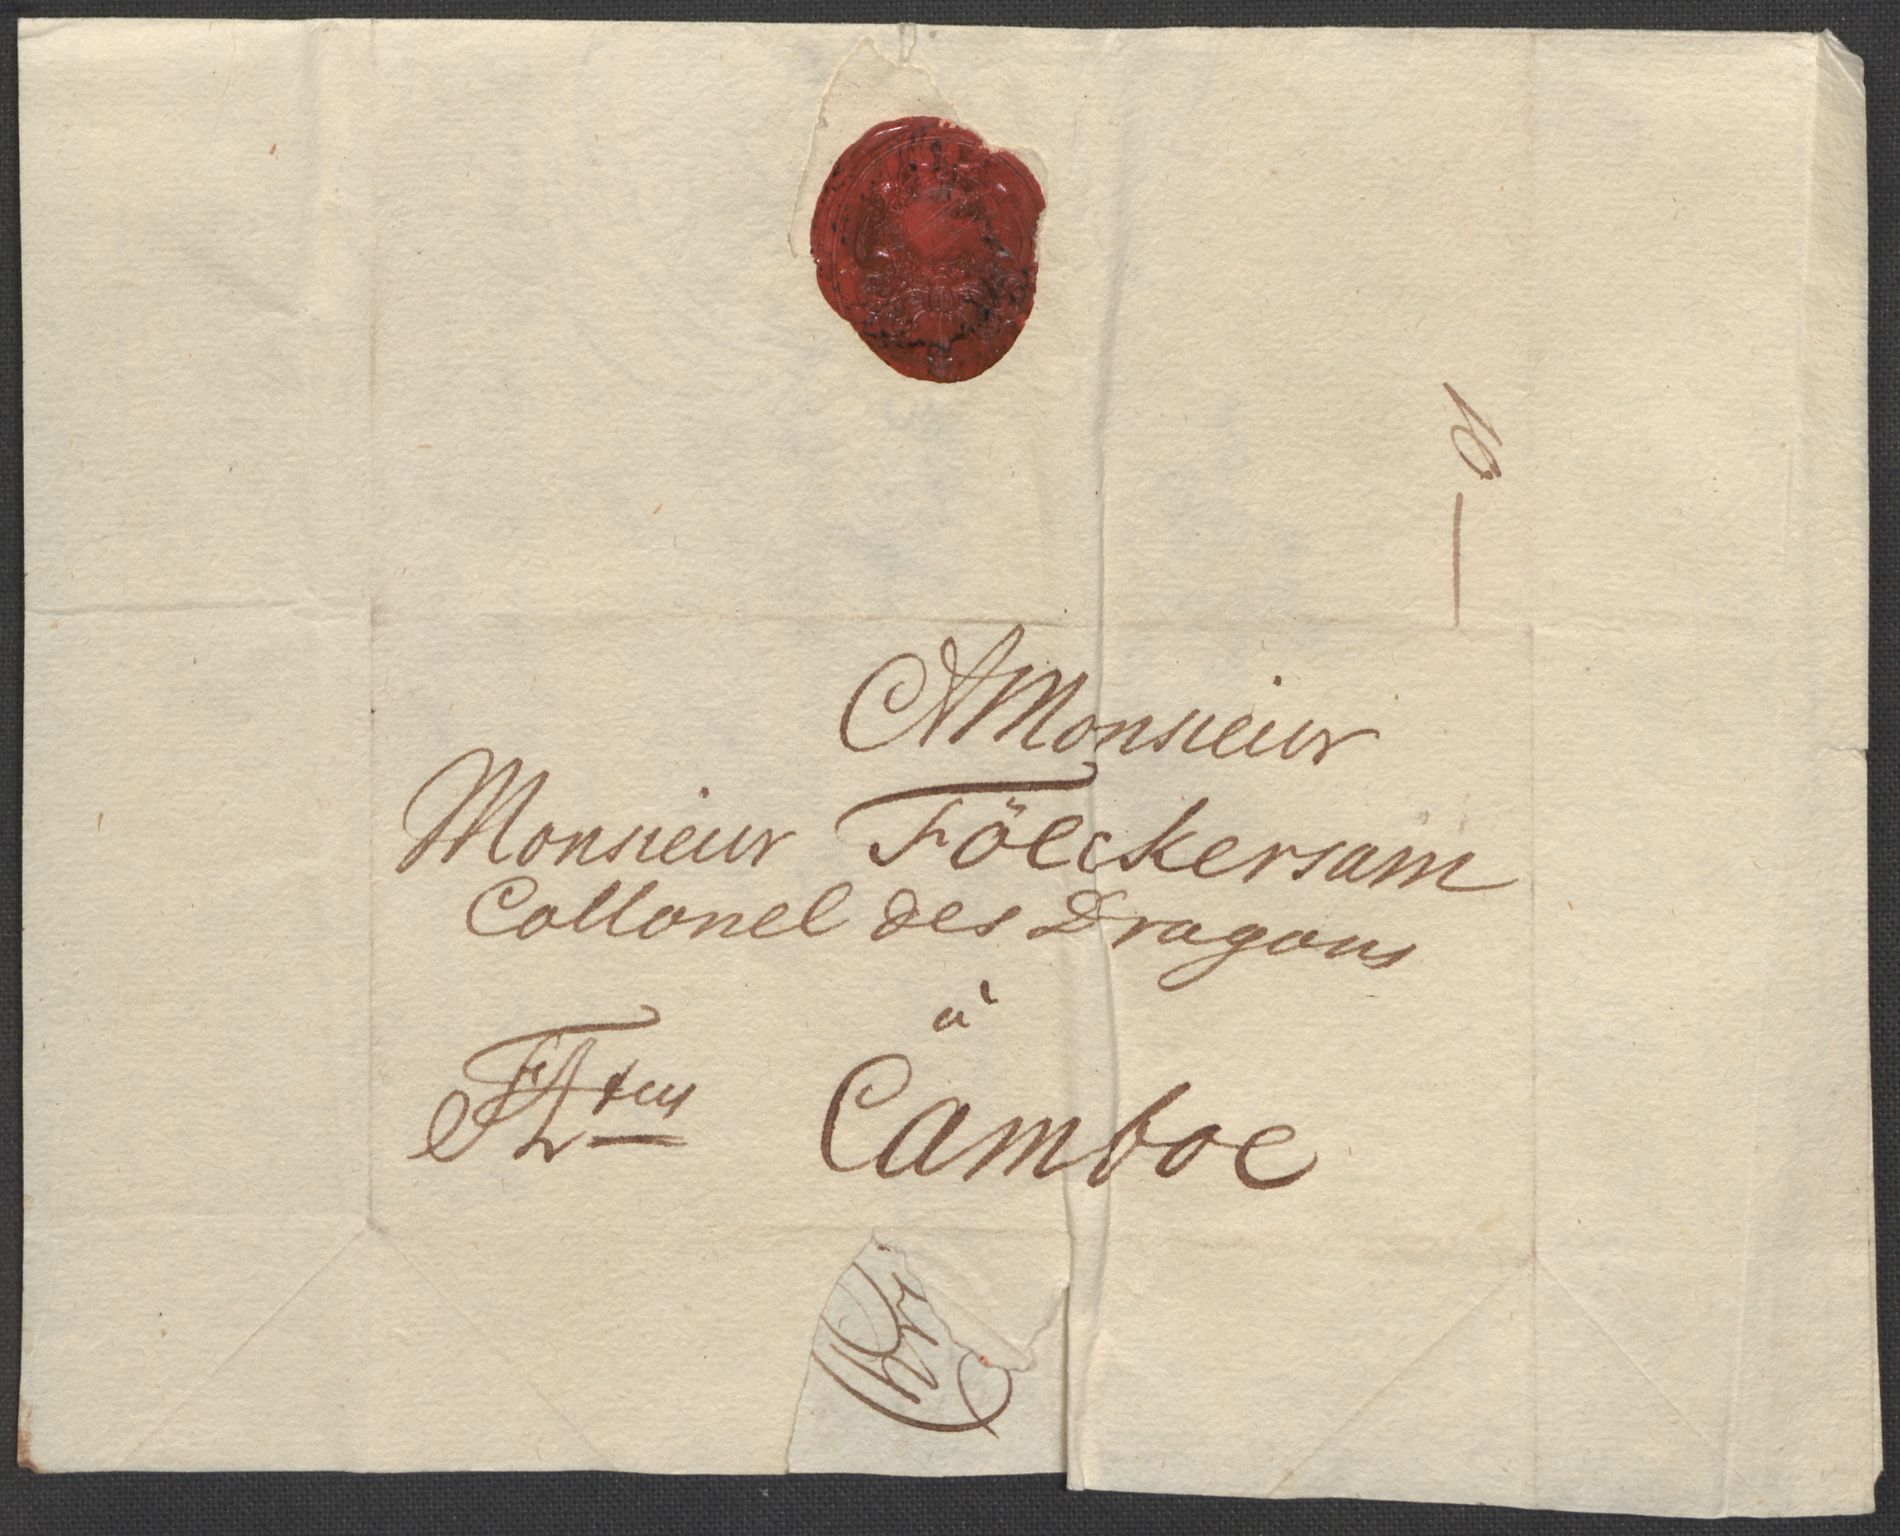 A Monsieur
Monsieur Fölckersam
Collonel des Dragons
à
Camboe